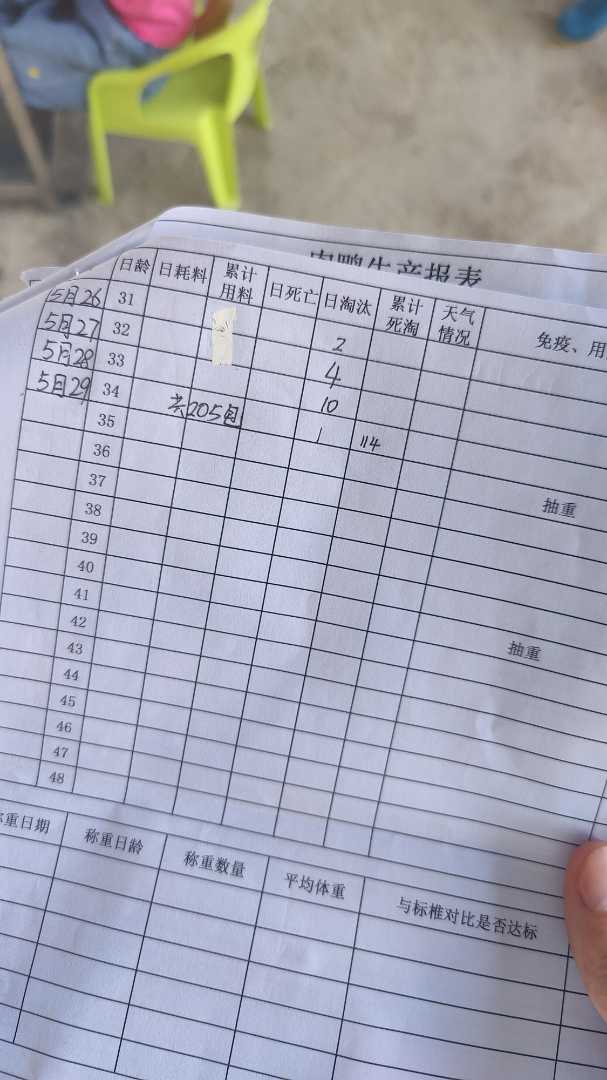 肉鸭生产报表
日龄 日耗料 累计用料 日死亡 日淘汰 累计死淘 天气情况 免疫、用
5月26 31 2
5月27 32 4
5月28 33 10
5月29 34 共205包 1 114
35
36
37
38 抽重
39
40
41
42
43 抽重
44
45
46
47
48
称重日期 称重日龄 称重数量 平均体重 与标椎对比是否达标